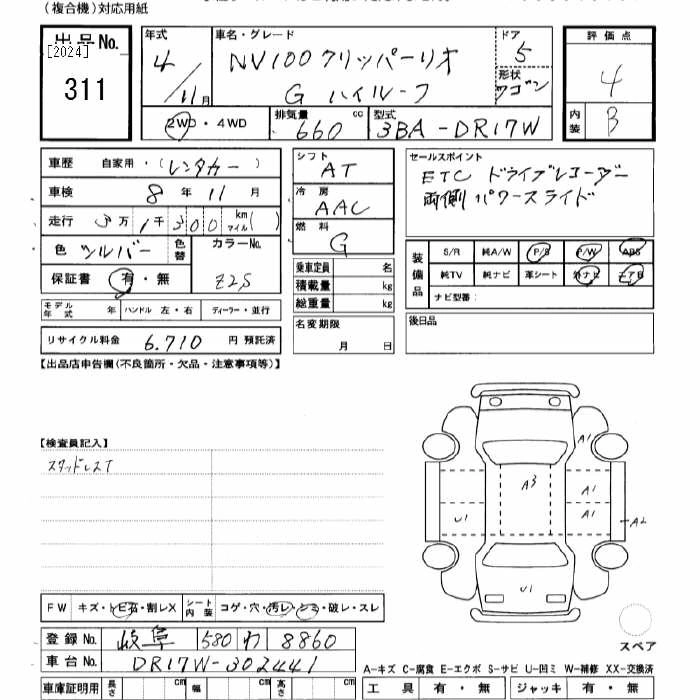 (複合機)対応用紙
出品No.
[2024]
311
年式
4
11月
車名・グレード
NV100クリッパーリオ
G ハイルーフ
ドア
5
形状
ワゴン
評価点
4
内装
B
2WD・4WD
排気量
660 cc
型式
3BA-DR17W
車歴 自家用・(レンタカー)
車検 8年 11月
走行 3万1千300 km マイル( )
色 シルバー
色替
カラーNo.
Z2S
保証書 有・無
モデル年式 年
ハンドル 左・右
ディーラー・並行
リサイクル料金 6,710 円 預託済
シフト
AT
冷房
AAC
燃料
G
乗車定員 名
積載量 kg
総重量 kg
名変期限
月 日
セールスポイント
ETC ドライブレコーダー
両側パワースライド
装備品
S/R 純A/W P/S P/W ABS
純TV 純ナビ 革シート 外ナビ エアB
ナビ型番:
後日品
【出品店申告欄(不良箇所・欠品・注意事項等)】
【検査員記入】
スタッドレスT
A1
A3
A1
A1
U1
A2
U1
スペア
FW キズ・トビ石・割レX
シート内装 コゲ・穴・汚レ・シミ・破レ・スレ
登録No. 岐阜 580 わ 8860
車台No. DR17W-302441
車庫証明用 長さ cm 幅 cm 高さ cm
A-キズ C-腐食 E-エクボ S-サビ U-凹ミ W-補修 XX-交換済
工具 有・無 ジャッキ 有・無